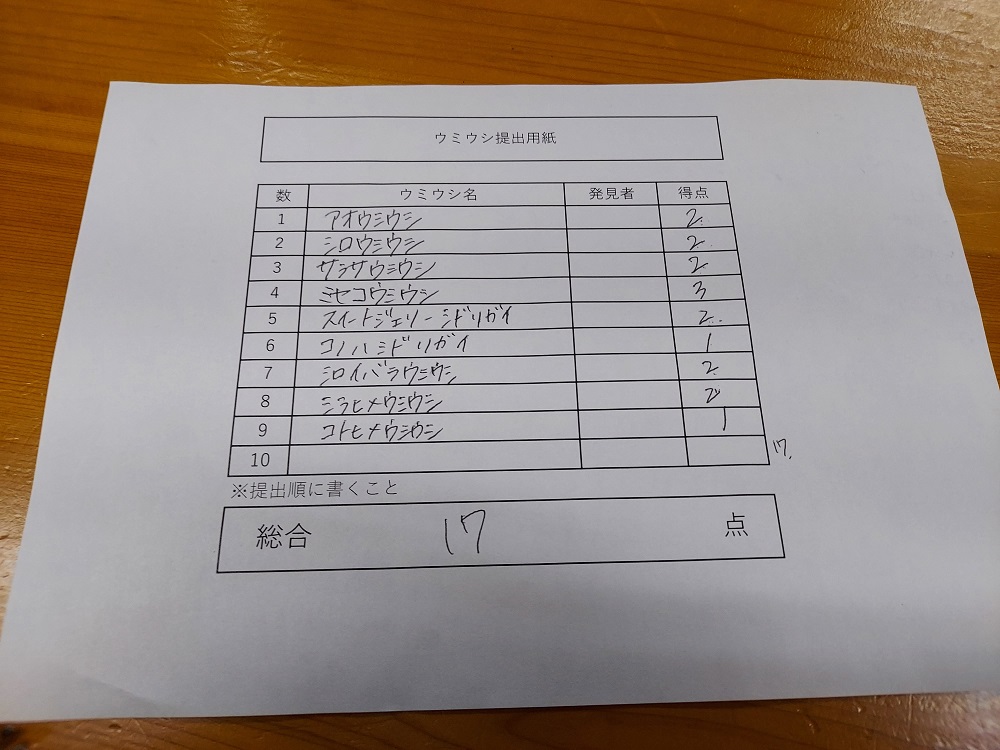 ウミウシ提出用紙
数 ウミウシ名 発見者 得点
1 アオウミウシ 2
2 シロウミウシ 2
3 サラサウミウシ 2
4 ミヤコウミウシ 3
5 スイートジェリーミドリガイ 2
6 コノハミドリガイ 1
7 シロイバラウミウシ 2
8 シラヒメウミウシ 2
9 コトヒメウミウシ 1
10
17.
※提出順に書くこと
総合 17 点